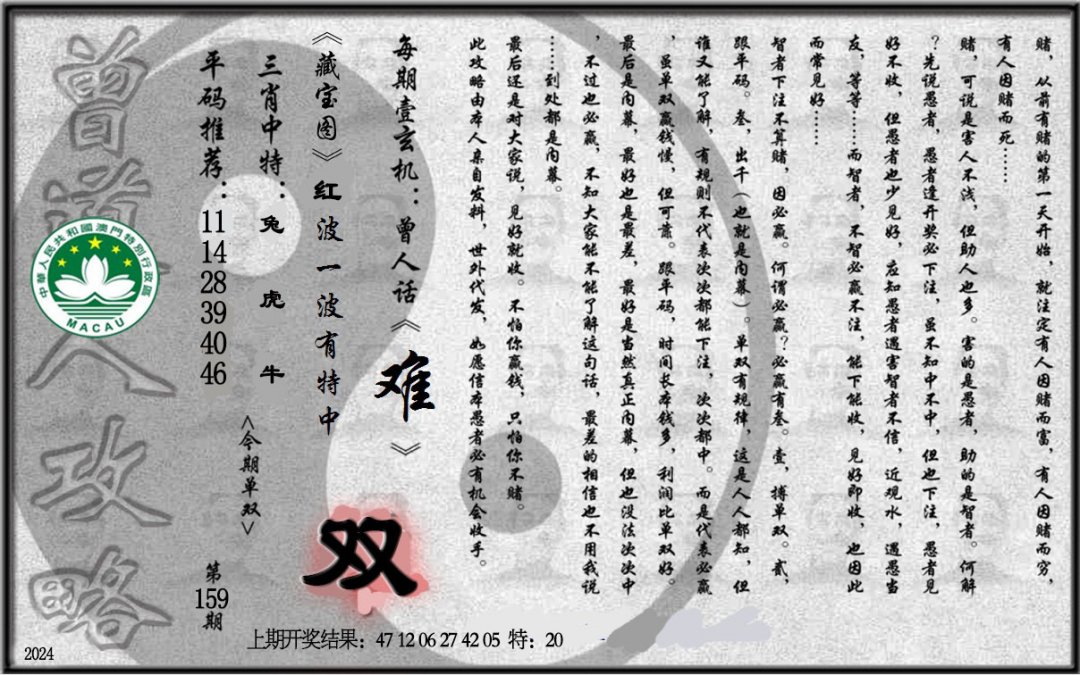 赌，从前有赌的第一天开始，就注定有人因赌而富，有人因赌而穷，
有人因赌而死……
赌，可说是害人不浅，但助人也多。害的是愚者，助的是智者。何解
？先说愚者，愚者逢开奖必下注，虽不知中不中，但也下注，愚者见
好不收，但愚者也少见好，应知愚者遇害智者不信，近观水，遇愚当
友，等等……而智者，不智必赢不注，能下能收，见好即收，也因此
而常见好……
智者下注不算赌，因必赢。何谓必赢？必赢有叁。壹，搏单双。贰，
跟平码。叁，出千（也就是内幕）。单双有规律，这是人人都知，但
谁又能了解，有规则不代表次次都能下注，次次都中。而是代表必赢
，虽单双赢钱慢，但可靠。跟平码，时间长本钱多，利润比单双好。
最后是内幕，最好也是最差，最好是当然真正内幕，但也没法次次中
，不过也必赢，不知大家能不能了解这句话，最差的相信也不用我说
……到处都是内幕。
最后还是对大家说，见好就收。不怕你赢钱，只怕你不赌。
此攻略由本人亲自发料，世外代发，如愿信本愚者必有机会收手。
每期壹玄机：曾人话《难》
《藏宝图》红波一波有特中
双
三肖中特：兔 虎 牛
<今期单双>
平码推荐：
11
14
28
39
40
46
第
159
期
曾道人攻略
中華人民共和國澳門特別行政區
MACAU
上期开奖结果：47 12 06 27 42 05 特：20
2024